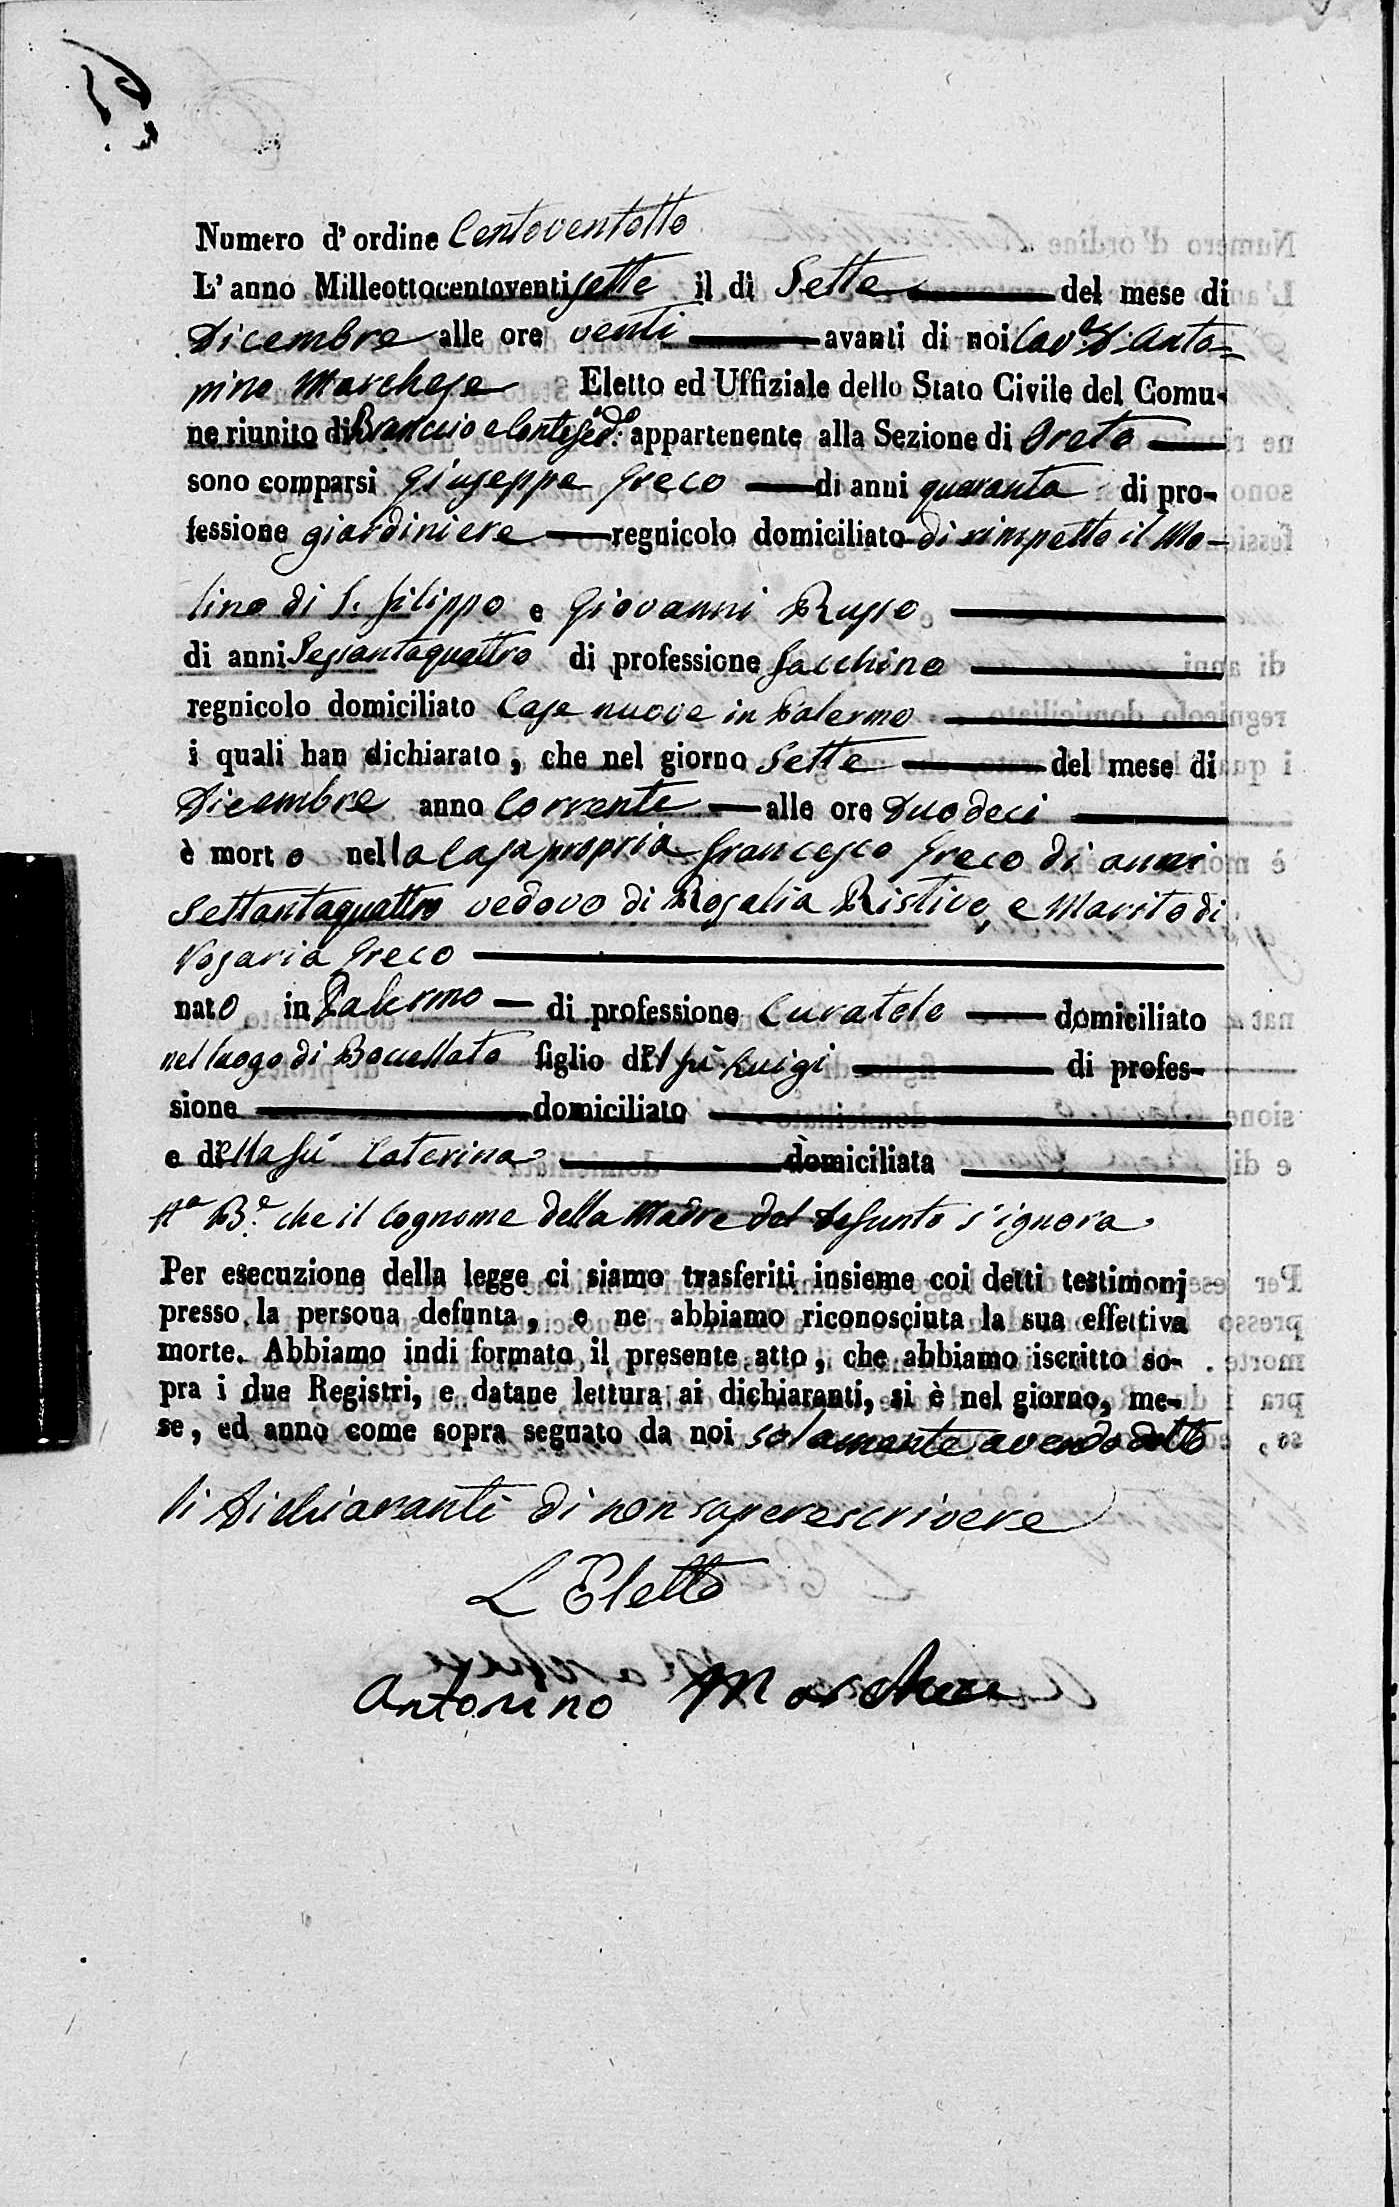 65
Numero d'ordine Centoventotto
L'anno Milleottocentoventisette il dì Sette del mese di
Dicembre alle ore venti avanti di noi Cav.e D. Anto=
nino Marchese Eletto ed Uffiziale dello Stato Civile del Comu-
ne riunito di appartenente alla Sezione di Oreto
sono comparsi Giuseppe Greco di anni quaranta di pro-
fessione giardiniere regnicolo domiciliato di rimpetto il Mo-
lino di S. Filippo e Giovanni Russo
di anni Sessantaquattro di professione facchino
regnicolo domiciliato Case nuove in Palermo
i quali han dichiarato, che nel giorno Sette del mese di
Dicembre anno Corrente alle ore Duodeci
è morto nella Casa propria Francesco Greco di anni
Settantaquattro vedovo di Rosalia Ristivo, e Marito di
Rosaria Greco
nato in Palermo di professione Curatolo domiciliato
nel luogo di figlio del fù Luigi di profes-
sione domiciliato
e della fù Caterina domiciliata
N.a B.e che il Cognome della Madre del Defunto s'ignora.
Per esecuzione della legge ci siamo trasferiti insieme coi detti testimonj
presso la persona defunta, e ne abbiamo riconosciuta la sua effettiva
morte. Abbiamo indi formato il presente atto, che abbiamo iscritto so-
pra i due Registri, e datane lettura ai dichiaranti, si è nel giorno, me-
se, ed anno come sopra segnato da noi solamente avendo detto
li Dichiaranti di non sapere scrivere
L'Eletto
Antonino Marchese